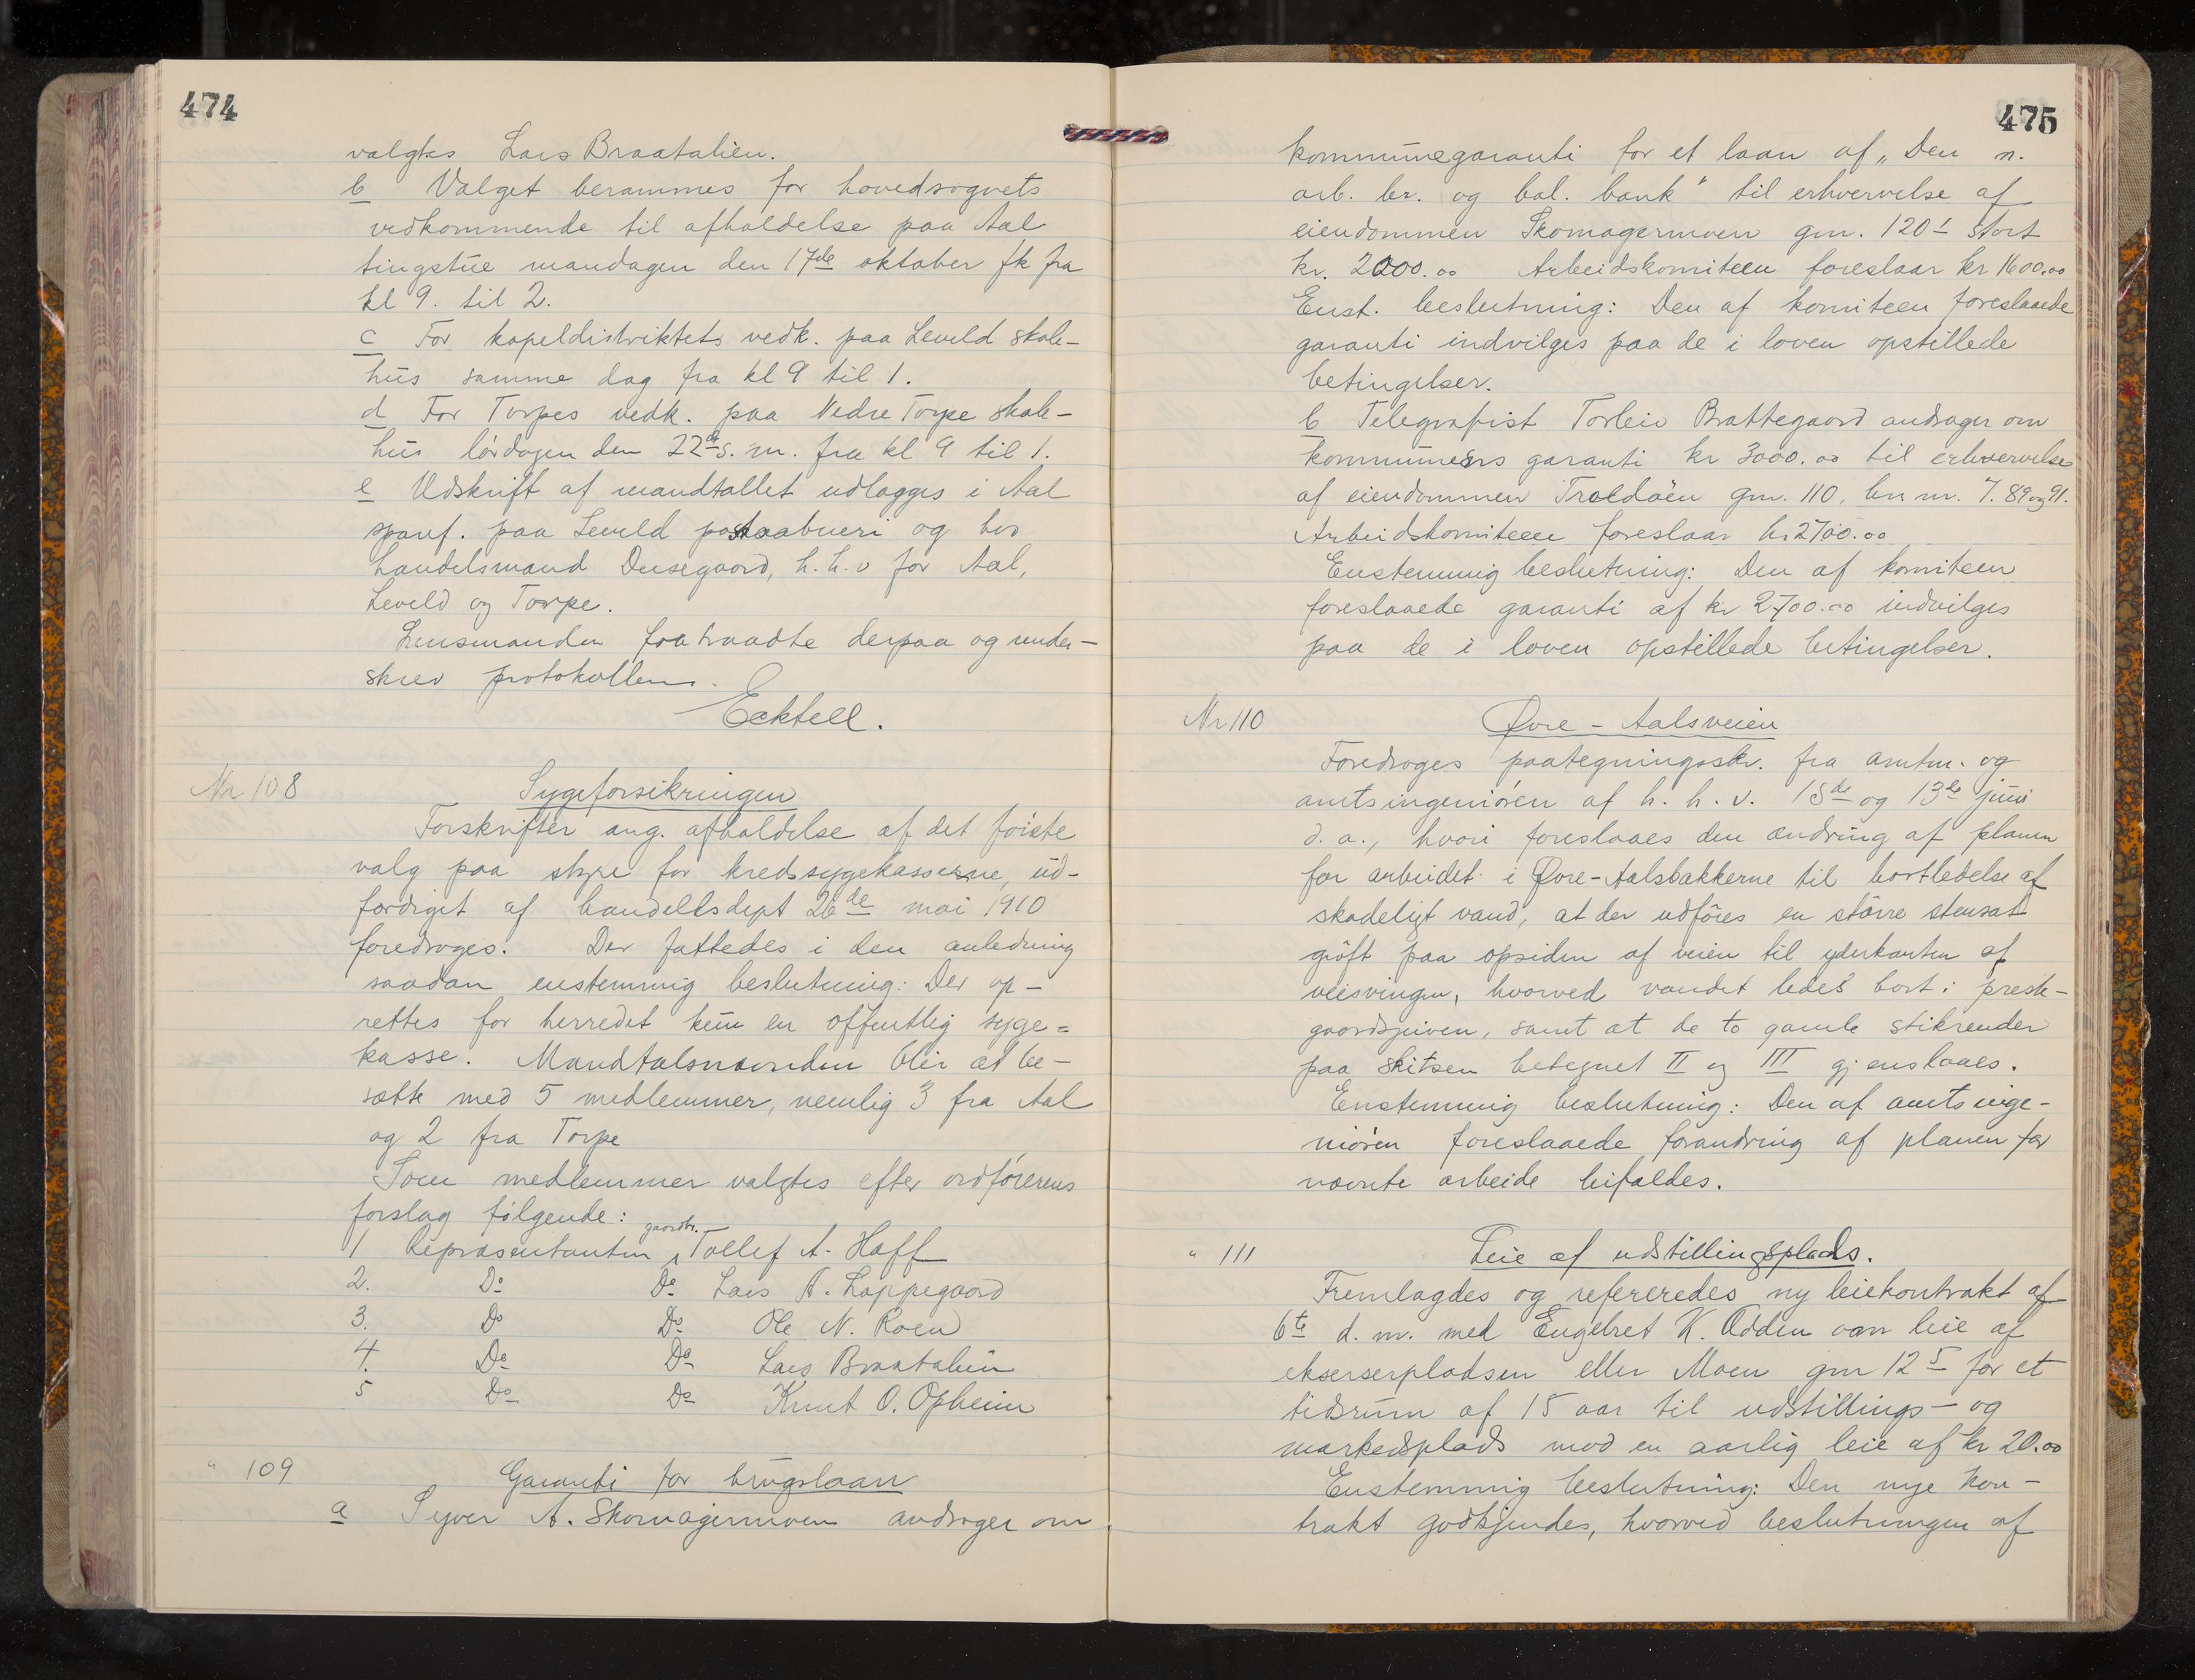 474
valgtes Lars Braatalien.
b Valget berammes for hovedsognets
vedkommende til afholdelse paa Aal
tingstue mandagen den 17de oktober fk fra
kl 9. til 2.
c For kapeldistriktets vedk. paa Leveld skole-
hus samme dag fra kl 9 til 1.
d For Torpes vedk. paa Nedre Torpe skole-
hus lördagen den 22de s. m. fra kl 9 til 1.
e Udskrift af mandtallet udlægges i Aal
sparef. paa Leveld postaabneri og hos
handelsmand Deusegaard, h. h. v for Aal,
Leveld og Torpe.
Lensmanden fratraadte derpaa og under-
skrev protokollen.
Eckhell.
Nr 108 Sygeforsikringen
Forskrifter ang. afholdelse af det förste
valg paa styre for kredssygekasserne, ud-
færdiget af handelsdept 26de mai 1910
foredroges. Der fattedes i den anledning
saadan enstemmig beslutning: Der op-
rettes for herredet kun en offentlig syge=
kasse. Mandtalsnævnden blir at be-
sætte med 5 medlemmer, nemlig 3 fra Aal
og 2 fra Torpe
Som medlemmer valgtes efter ordförerens
forslag fölgende:
1 Repræsentanten gaardbr. Tollef A. Hoff
2. Do Do Lars A. Lappegaard
3. Do Do Ole N. Roen
4. Do Do Lars Braatalien
5 Do Do Knut O. Opheim
" 109 Garanti for brugslaan
a Syver A. Skomagermoen andrager om
475
kommunegaranti for et laan af „Den n.
arb. br. og bol. bank" til erhvervelse af
eiendommen Skomagermoen gm. 120 1 stort
kr. 2000.00 Arbeidskomiteen foreslaar kr 1600.00
Enst. beslutning: Den af komiteen foreslaaede
garanti indvilges paa de i loven opstillede
betingelser.
b Telegrafist Torleiv Brattegaard andrager om
kommunens garanti kr 3000.00 til erhvervelse
af eiendommen Troldöen gm. 110, br. nr. 7. 89 og 91.
Arbeidskomiteen foreslaar kr 2700.00
Enstemmig beslutning: Den af komiteen
foreslaaede garanti af kr 2700.00 indvilges
paa de i loven opstillede betingelser.
Nr 110 Øvre - Aalsveien
Foredroges paategningsskr. fra amtm. og
amtsingeniören af h. h. v. 15de og 13de juni
d. a., hvori foreslaaes den ændring af planen
for arbeidet i Øvre-Aalsbakkerne til bortledelse af
skadeligt vand, at der udföres en större stensat
gröft paa opsiden af veien til yderkanten af
veisvingen, hvorved vandet ledes bort i preste-
gaardsjuven, samt at de to gamle stikrender
paa skitsen betegnet II og III gjenslaaes.
Enstemmig beslutning: Den af amtsinge-
niören foreslaaede forandring af planen for
nævnte arbeide bifaldes.
" 111 Leie af udstillingsplads.
Fremlagdes og refereredes ny leiekontrakt af
6te d. m. med Engebret K. Odden om leie af
ekserserpladsen eller Moen gm 12 5 for et
tidsrum af 15 aar til udstillings- og
markedsplads mod en aarlig leie af kr 20.00
Enstemmig beslutning: Den nye kon-
trakt godkjendes, hvorved beslutningen af